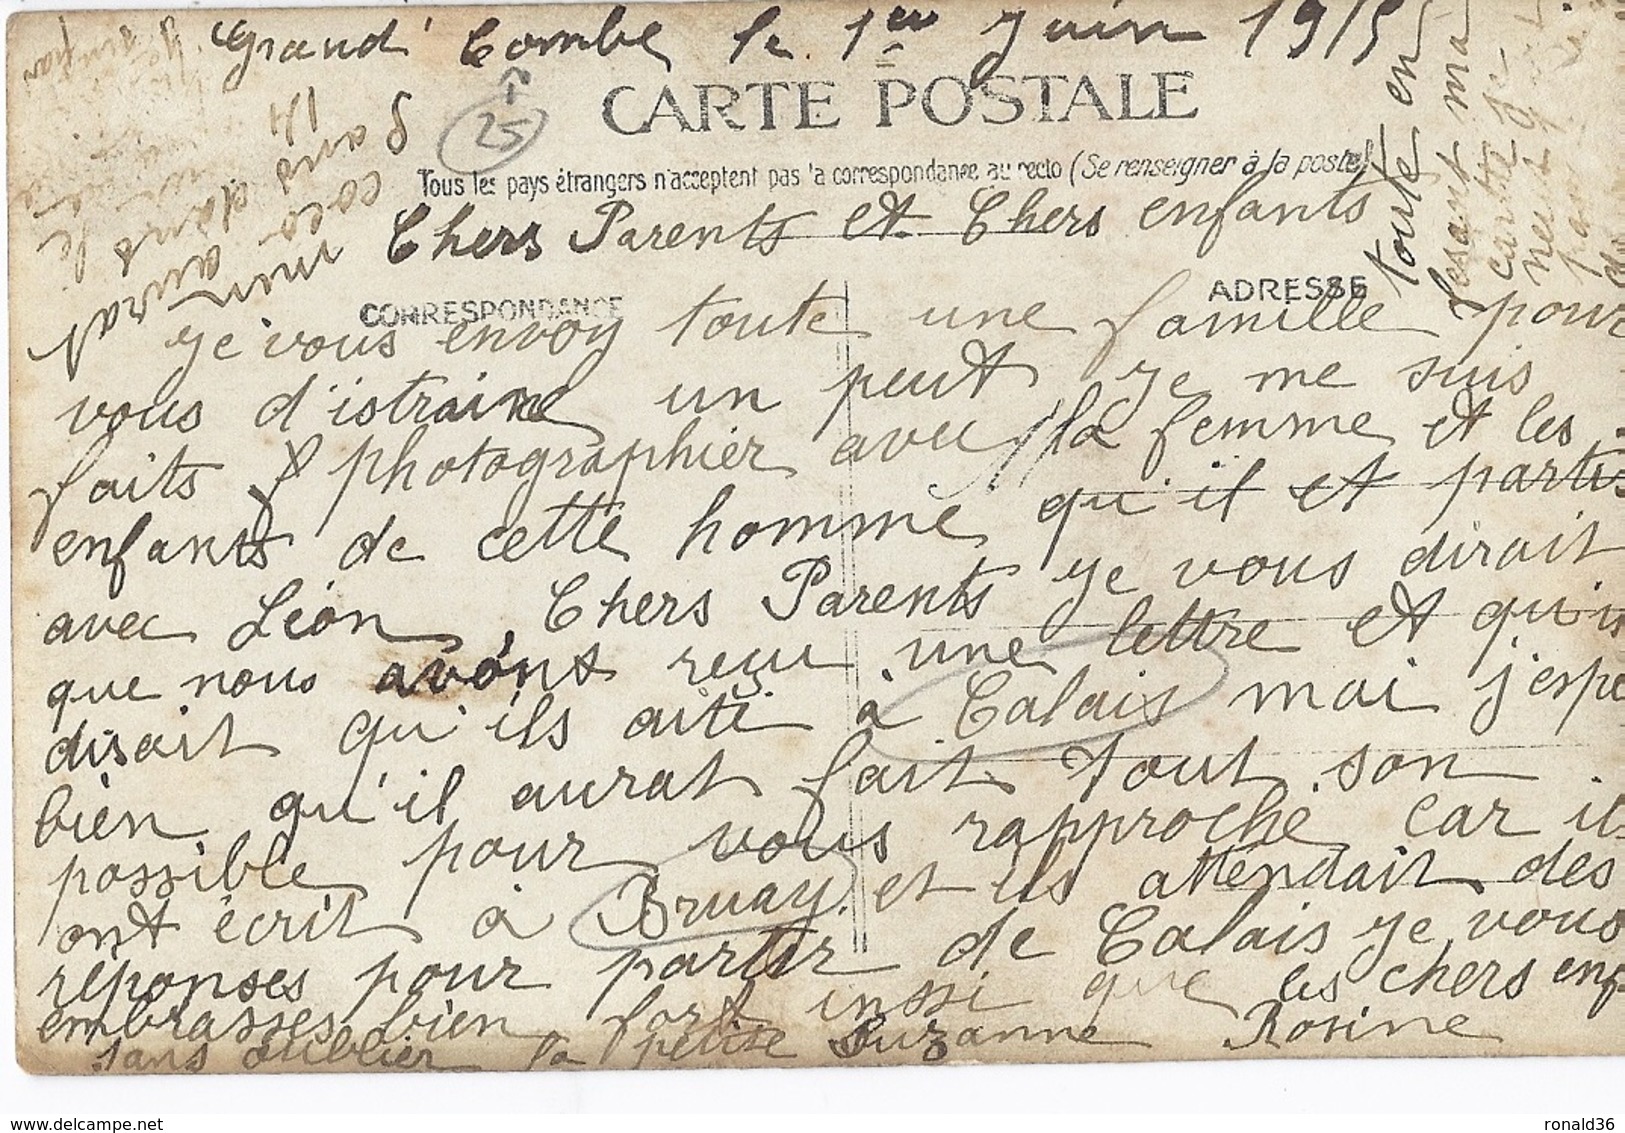 Grand' Combe le 1er Juin 1915
25
CARTE POSTALE
Tous les pays étrangers n'acceptent pas la correspondance au recto (Se renseigner à la poste)
Chers Parents et Chers enfants
CORRESPONDANCE
ADRESSE
Je vous envoy toute une famille pour
vous d'istraire un peut Je me suis
faits photographier avec la femme et les
enfants de cette homme qu'il et partis
avec Léon, Chers Parents Je vous dirait
que nous avont reçu une lettre et qu'il
disait qu'ils aité à Calais moi j'espe
bien qu'il aurat fait tout son
possible pour vous rapproché car il
ont écrit à Bruay et ils attendait des
réponses pour partir de Calais Je vous
embrasses bien fort inssi que les chers enf
sans oublier la petite Suzanne Rosine
toute en
fesant ma
carte Je
neut
pas
mon coco aurat
14
dans le
ronald36